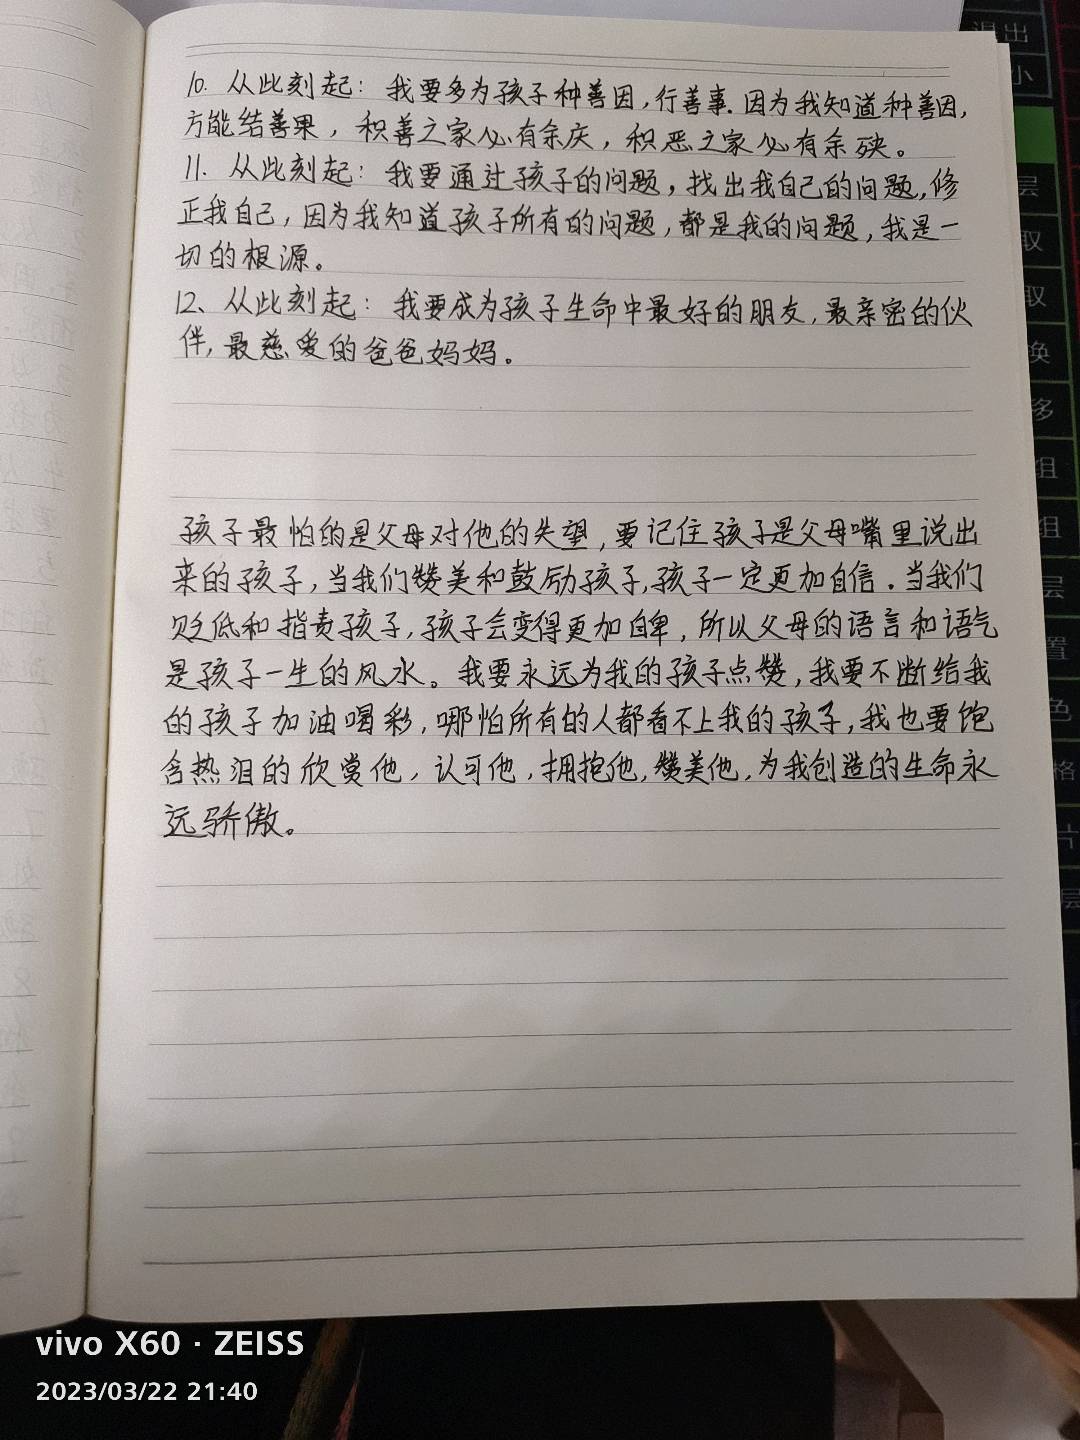 10. 从此刻起：我要多为孩子种善因，行善事.因为我知道种善因，
方能结善果，积善之家必有余庆，积恶之家必有余殃。
11. 从此刻起：我要通过孩子的问题，找出我自己的问题，修
正我自己，因为我知道孩子所有的问题，都是我的问题，我是一
切的根源。
12、从此刻起：我要成为孩子生命中最好的朋友，最亲密的伙
伴，最慈爱的爸爸妈妈。
孩子最怕的是父母对他的失望，要记住孩子是父母嘴里说出
来的孩子，当我们赞美和鼓励孩子，孩子一定更加自信.当我们
贬低和指责孩子，孩子会变得更加自卑，所以父母的语言和语气
是孩子一生的风水。我要永远为我的孩子点赞，我要不断给我
的孩子加油喝彩，哪怕所有的人都看不上我的孩子，我也要饱
含热泪的欣赏他，认可他，拥抱他，赞美他，为我创造的生命永
远骄傲。
退出
小
层
取
取
换
移
组
组
层
置
色
格
片
层
vivo X60 · ZEISS
2023/03/22 21:40